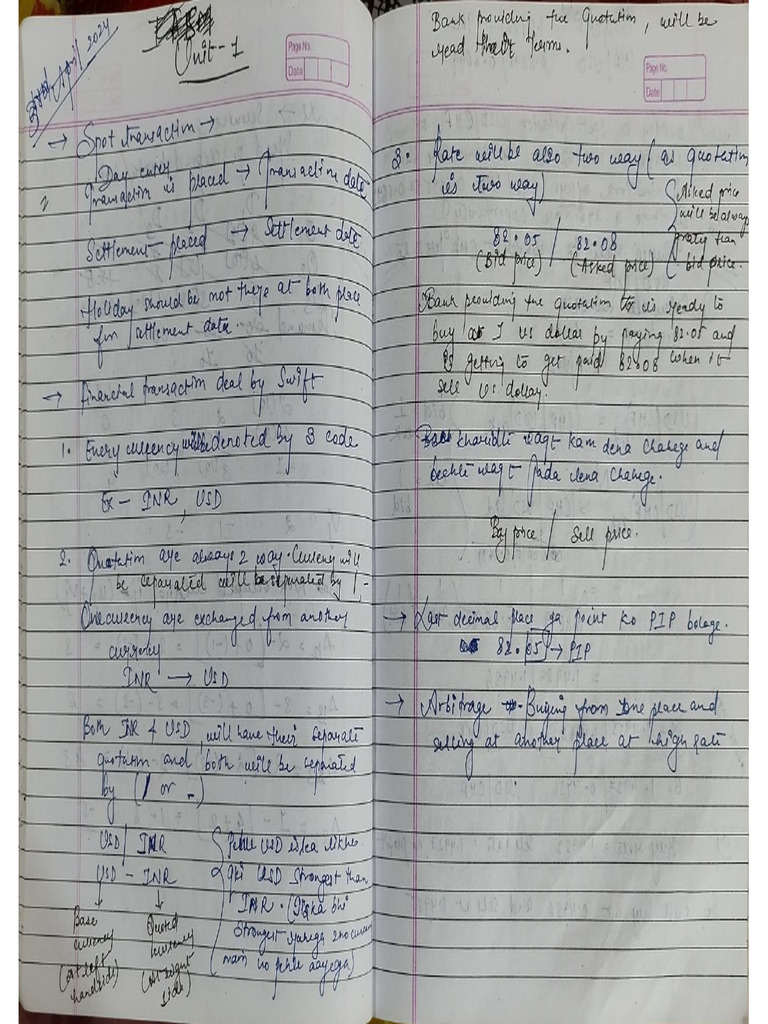 April 2024
Unit-1
Page No.
Date
→ Spot transaction →
Day every
Transaction is placed → Transaction date
Settlement placed → Settlement date
Holiday should be not there at both place
for settlement date.
→ Financial transaction deal by Swift
1. Every currency will be denoted by 3 code
Ex - INR, USD
2. Quotation are always 2 way. Currency will
be separated will be separated by / -
One currency are exchanged from another
currency
INR → USD
Both INR & USD will have their separate
quotation and both will be separated
by (/ or -)
USD / INR
USD - INR
Base currency (at left handside)
Quoted currency (at right side)
Pehle USD iska likhe
USD strongest than
INR. (Jiska bhi
strongest
wo pehle aayega)
Bank providing the Quotation, will be
read their terms.
Page No.
Date
3. Rate will be also two way (as quotation
is two way)
82.05 / 82.08
(Bid price) (Asked price)
Asked price
will be always
than
bid price.
Bank providing the quotation is ready to
buy 1 US dollar by paying 82.05 and
is getting to get paid 82.08 when it
sell US dollar.
Bank kharidte waqt kam dena chahege and
bechte waqt jada lena chahege.
Buy price / Sell price.
→ Last decimal place ya point ko PIP bolage.
82.05 → PIP
→ Arbitrage - Buying from one place and
selling at another place at high rate